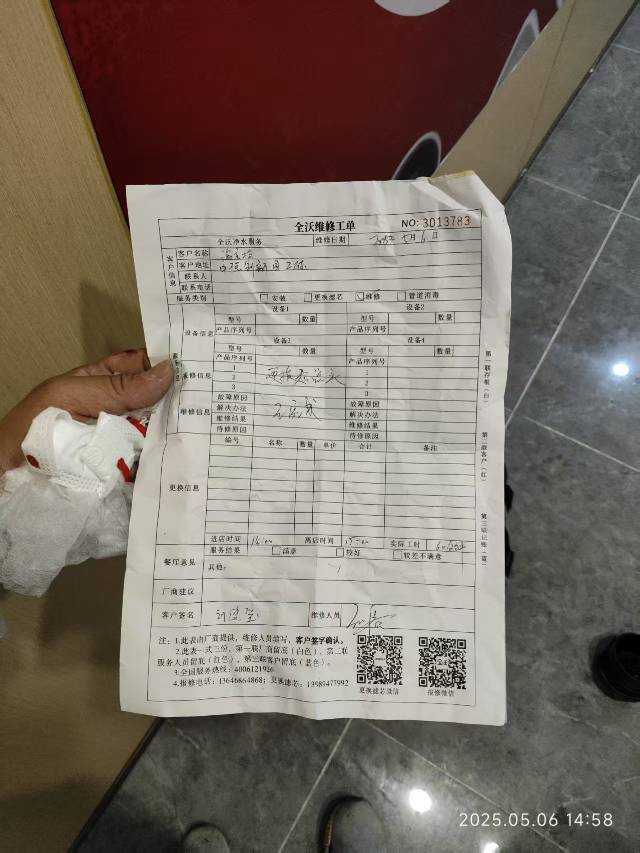 全沃维修工单
NO: 3013783
全沃净水服务 维修日期 5月6日
客户信息
客户名称
客户地址
联系人
联系电话
服务类别 安装 更换滤芯 维修 管道消毒
设备信息
设备1 设备2
型号 数量 型号 数量
产品序列号 产品序列号
设备3 设备4
型号 数量 型号 数量
产品序列号 产品序列号
维修信息
1 更换 1
2 2
3 3
故障原因 故障原因
维修信息
解决办法 已完成 解决办法
维修结果 维修结果
待修原因 待修原因
更换信息
编号 名称 数量 单价 合计 备注
进店时间 14:00 离店时间 15:00 实际工时 60分钟
餐厅意见
服务结果 满意 较好 较差不满意
其他:
厂商建议
客户签名 维修人员
注:1.此表由厂商提供,维修人员填写,客户签字确认。
2.此表一式三份,第一联厂商留底(白色)、第二联
服务人员留底(红色)、第三联客户留底(蓝色)。
3.全国服务热线:4006121926
4.报修电话:13646864868;更换滤芯:13989477992
更换滤芯微信 报修微信
第一联存根(白)
第二联客户(红)
第三联记账(蓝)
2025.05.06 14:58